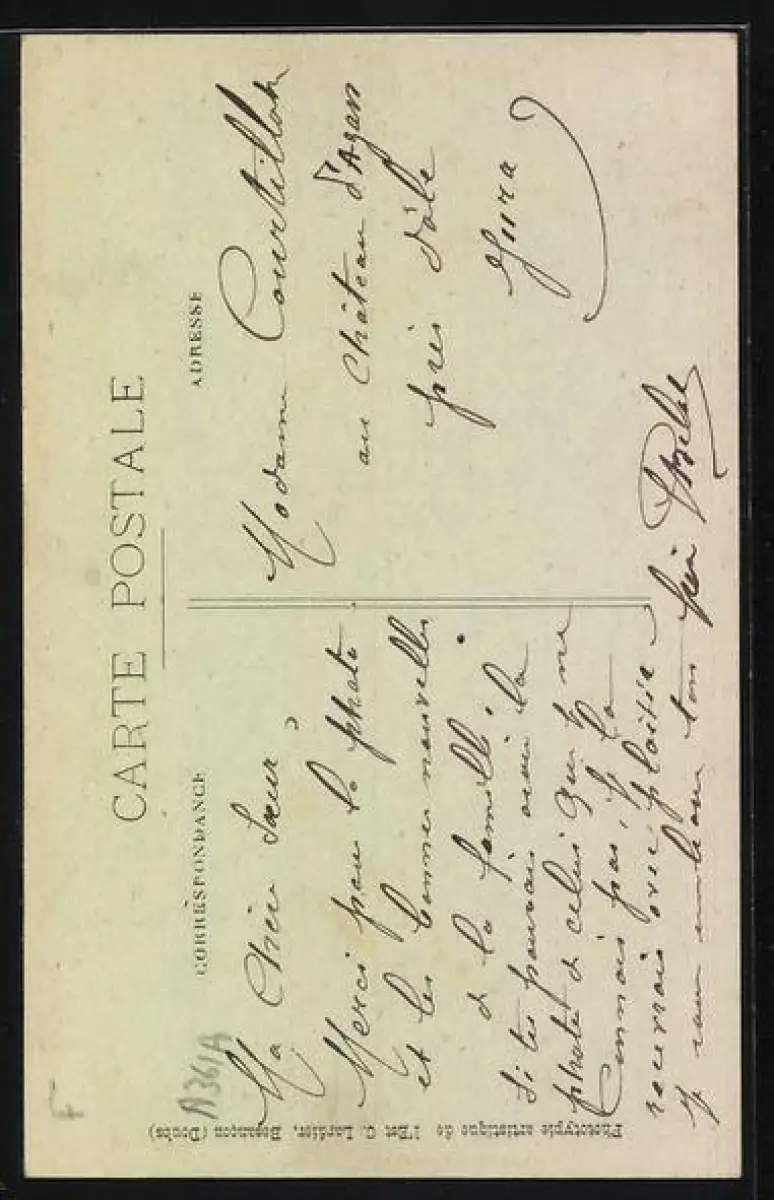 CARTE POSTALE
CORRESPONDANCE
ADRESSE
Ma Chère Sœur,
Merci pour la photo
et les bonnes nouvelles
de la famille.
Si tu pouvais avoir la
photo de celui que je ne
Connais pas, je la
recevrais avec plaisir
Je vous embrasse ton
Madame Courtillot
au Château d'Azan
près Dôle
Jura
Phototypie artistique de l'Est C. Lardier, Besançon (Doubs)
A361A
F